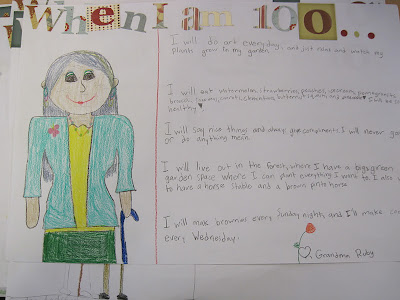 When I am 100...
I will do art everyday, and just relax and watch my
plants grow in my garden.
I will eat watermelon, strawberries, peaches, coconuts, pomegranates,
healthy
I will say nice things and always give compliments. I will never
or do anything mean.
I will live out in the forest, where I have a big green
garden space where I can plant everything I want to. I also
to have a horse stable and a brown horse.
I will make brownies every Sunday nights, and I'll make
every Wednesday.
Grandma Ruby